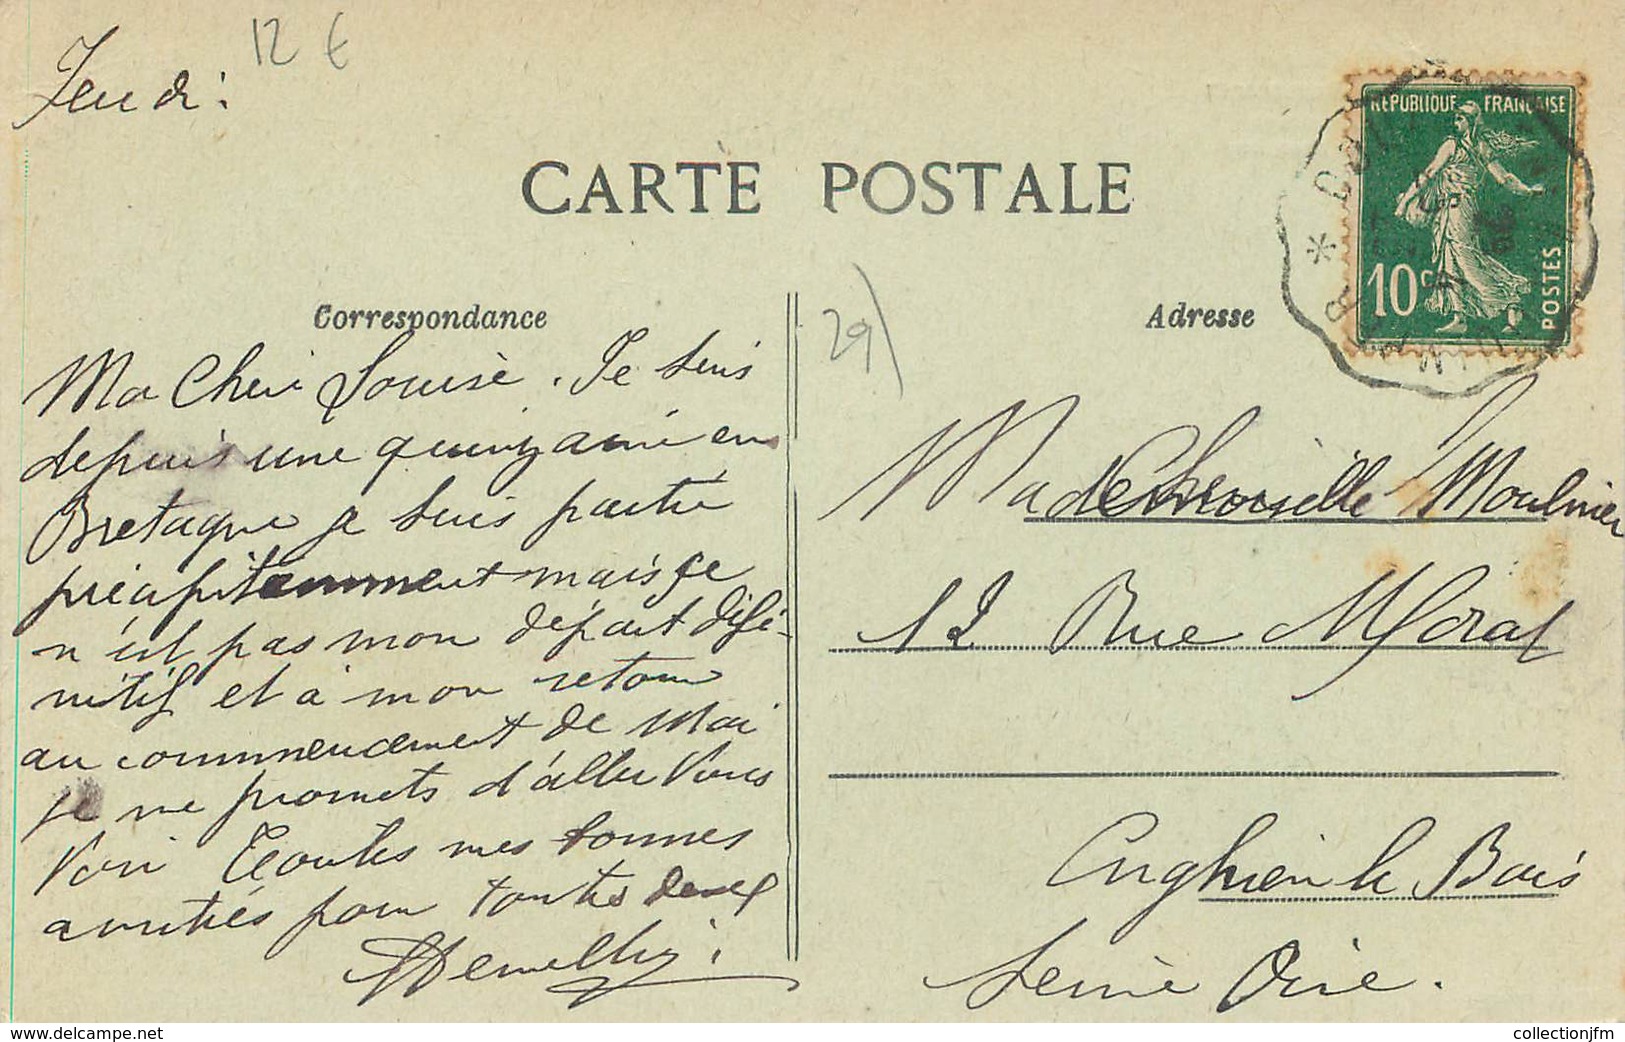 Jeudi.
12 €
CARTE POSTALE
REPUBLIQUE FRANCAISE
10c
POSTES
Correspondance
Ma Cheri Louise. Je suis
depuis une quinzaine en
Bretagne je suis partie
précipitemment mais ce
n'est pas mon départ défi-
nitif et à mon retour
au commencement de Mai
je me promets d'aller Vous
Voir Toutes mes bonnes
amitiés pour toutes deux
29)
Adresse
Mademoiselle Moulinier
12 Rue Moral
Enghien le Bois
Seine Oise.
www.delcampe.net
collectionjfm